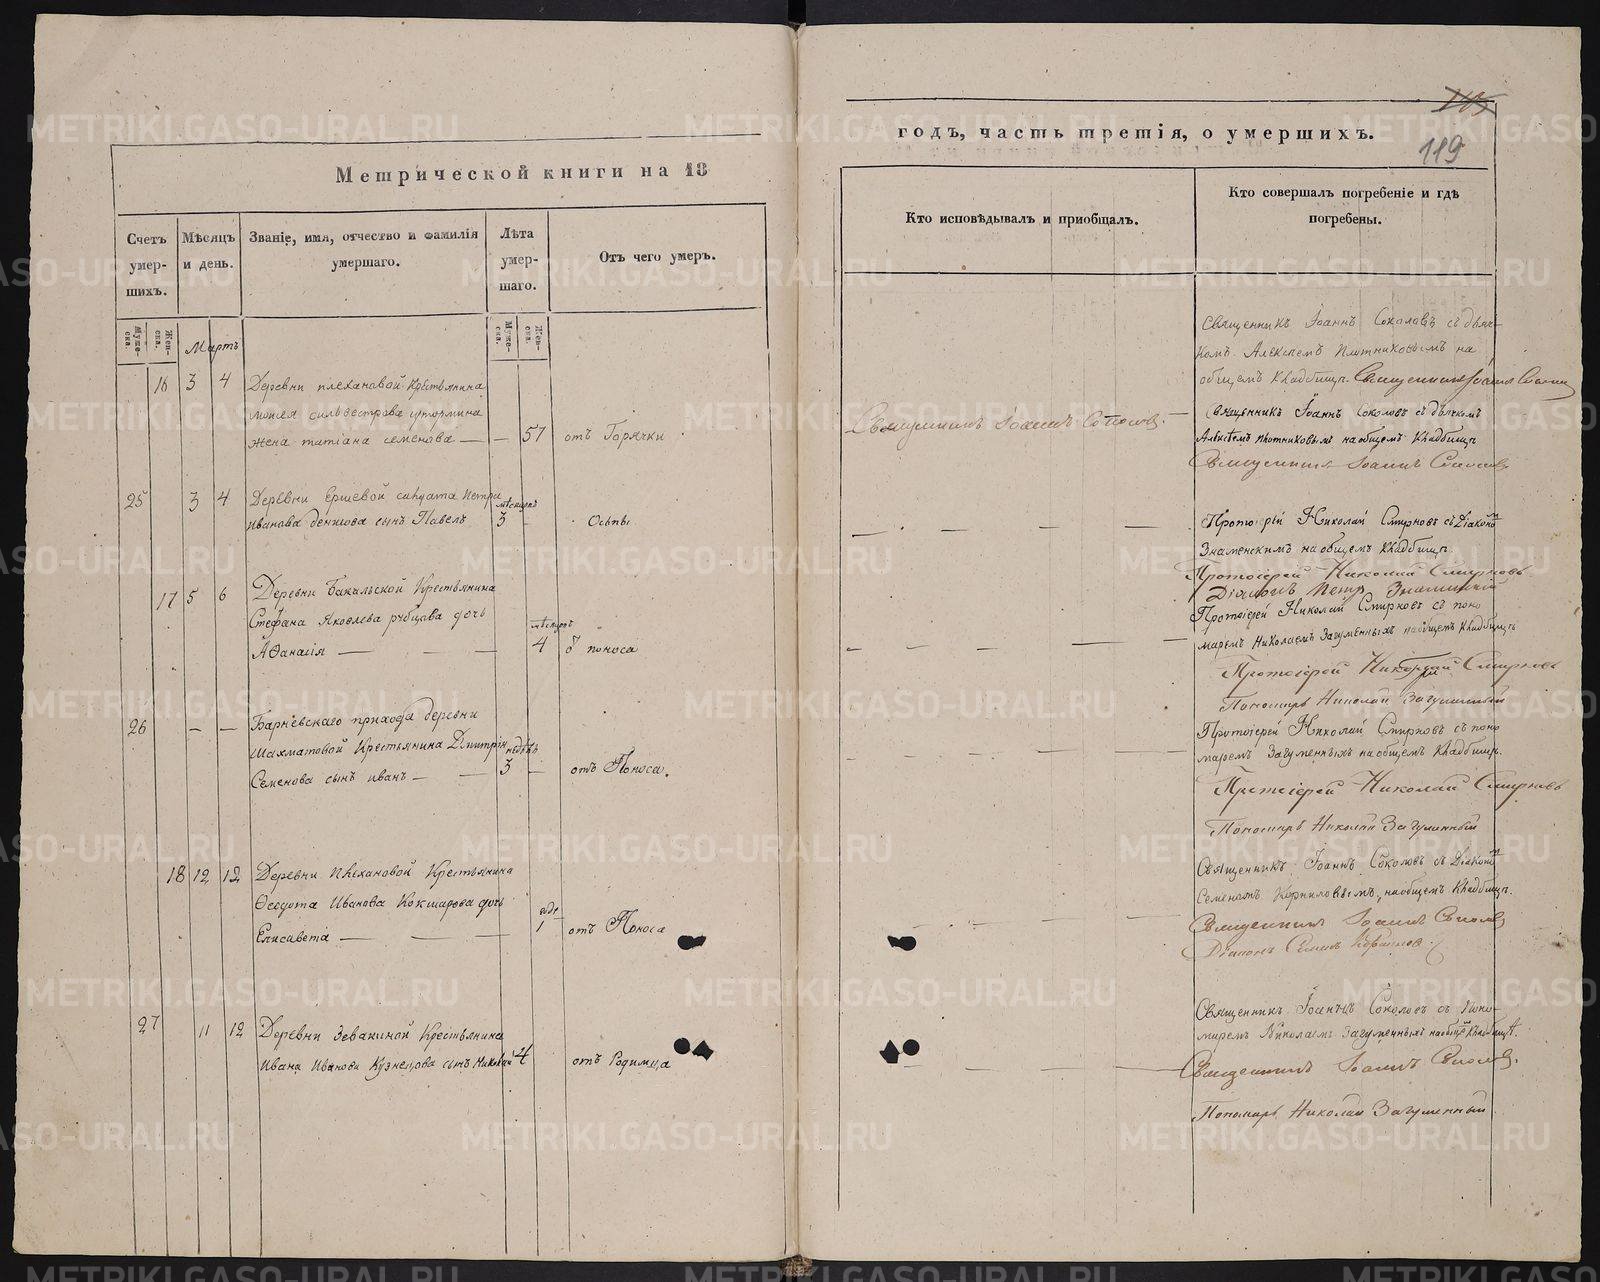 Метрической книги на 18
Счетъ умершихъ.
Мѣсяцъ и день.
Званіе, имя, отчество и фамилія умершаго.
Лѣта умершаго.
Отъ чего умеръ.
Муже- ска.
Жен- ска.
Муже- ска.
Жен- ска.
Мартъ
16 3 4 Деревни плехановой Крестьянина
моисея сильвестрова
жена татіана семенова — — 57 отъ Горячки
25 3 4 Деревни Ершевой салдата петра
мѣсяцовъ
иванова денисова сынъ Павелъ 3 — Оспы
17 5 6 Деревни Бакальской Крестьянина
Стефана Яковлева рубцова дочь
мѣсяцовъ
Аѳанасія — — — 4 ѿ поноса
26 — — Барневскаго прихода деревни
Шахматовой Крестьянина Димитрія
недѣль
Семенова сынъ иванъ — — 3 — отъ Поноса.
18 12 12 Деревни Плехановой Крестьянина
Ѳеодота Иванова Кокшарова дочь
годъ
Елисавета — — — 1 отъ Поноса
27 11 12 Деревни Зевакиной Крестьянина
Ивана Иванова Кузнецова сынъ Николай 4 отъ Родимца
годъ, часть третія, о умершихъ.
119
Кто исповѣдывалъ и приобщалъ.
Кто совершалъ погребеніе и гдѣ погребены.
Священникъ Іоаннъ Соколовъ съ дьяч-
комъ Алексѣемъ Плотниковымъ на
общемъ Кладбищѣ. Священникъ Іоаннъ Соколовъ
Священникъ Іоаннъ Соколовъ.
Священникъ Іоаннъ Соколовъ съ дьячкомъ
Алексѣемъ Плотниковымъ на общемъ Кладбищѣ
Священникъ Іоаннъ Соколовъ
Протоіерей Николай Смирновъ съ Діакономъ
Знаменскимъ на общемъ Кладбищѣ.
Протоіерей Николай Смирновъ
Діаконъ Петръ Знаменскій
Протоіерей Николай Смирновъ съ поно
маремъ Николаемъ Загуменныхъ на общемъ Кладбищѣ
Протоіерей Николай Смирновъ
Пономарь Николай Загуменный
Протоіерей Николай Смирновъ съ поно
маремъ Загуменныхъ на общемъ Кладбищѣ.
Протоіерей Николай Смирновъ
Пономарь Николай Загуменный
Священникъ Іоаннъ Соколовъ съ Діакономъ
Семеномъ Корниловымъ, на общемъ Кладбищѣ.
Священникъ Іоаннъ Соколовъ
Діаконъ Семенъ Корниловъ
Священникъ Іоаннъ Соколовъ съ Поно-
маремъ Николаемъ Загуменныхъ на общемъ Кладбищѣ.
Священникъ Іоаннъ Соколовъ.
Пономарь Николай Загуменный
METRIKI.GASO-URAL.RU